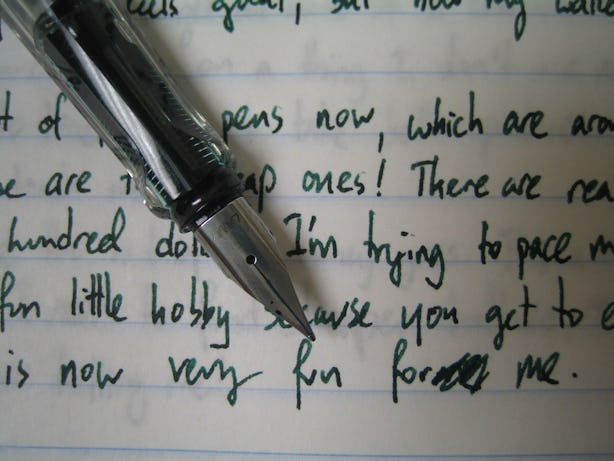 great, but now my
of pens now, which are
are ones! There are
hundred I'm trying to pace
fun little hobby because you get to
is now very fun for me.